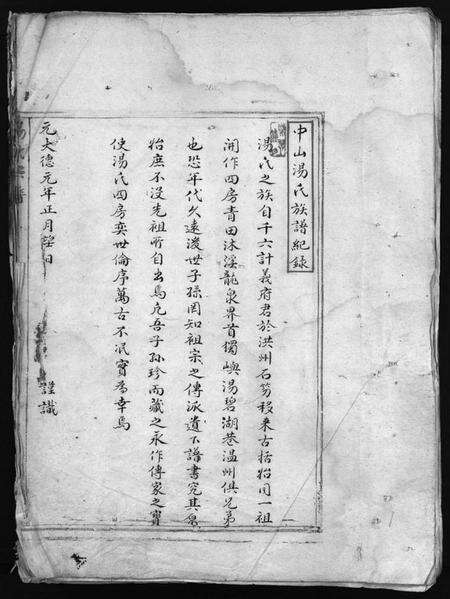 中山湯氏族譜紀錄
湯氏之族自千六計義府君於洪州石笏移来古括始同一祖
開作四房青田沐溪龍泉界首獨嶼湯碧湖巷温州俱兄弟
也恐年代久遠後世子孫罔知祖宗之傳派遺下譜書究其泉
始庶不没先祖所自出焉凡吾子孫珍而藏之永作傳家之寶
使湯氏四房奕世倫序萬古不泯寶為幸焉
元大德元年正月望日 謹識